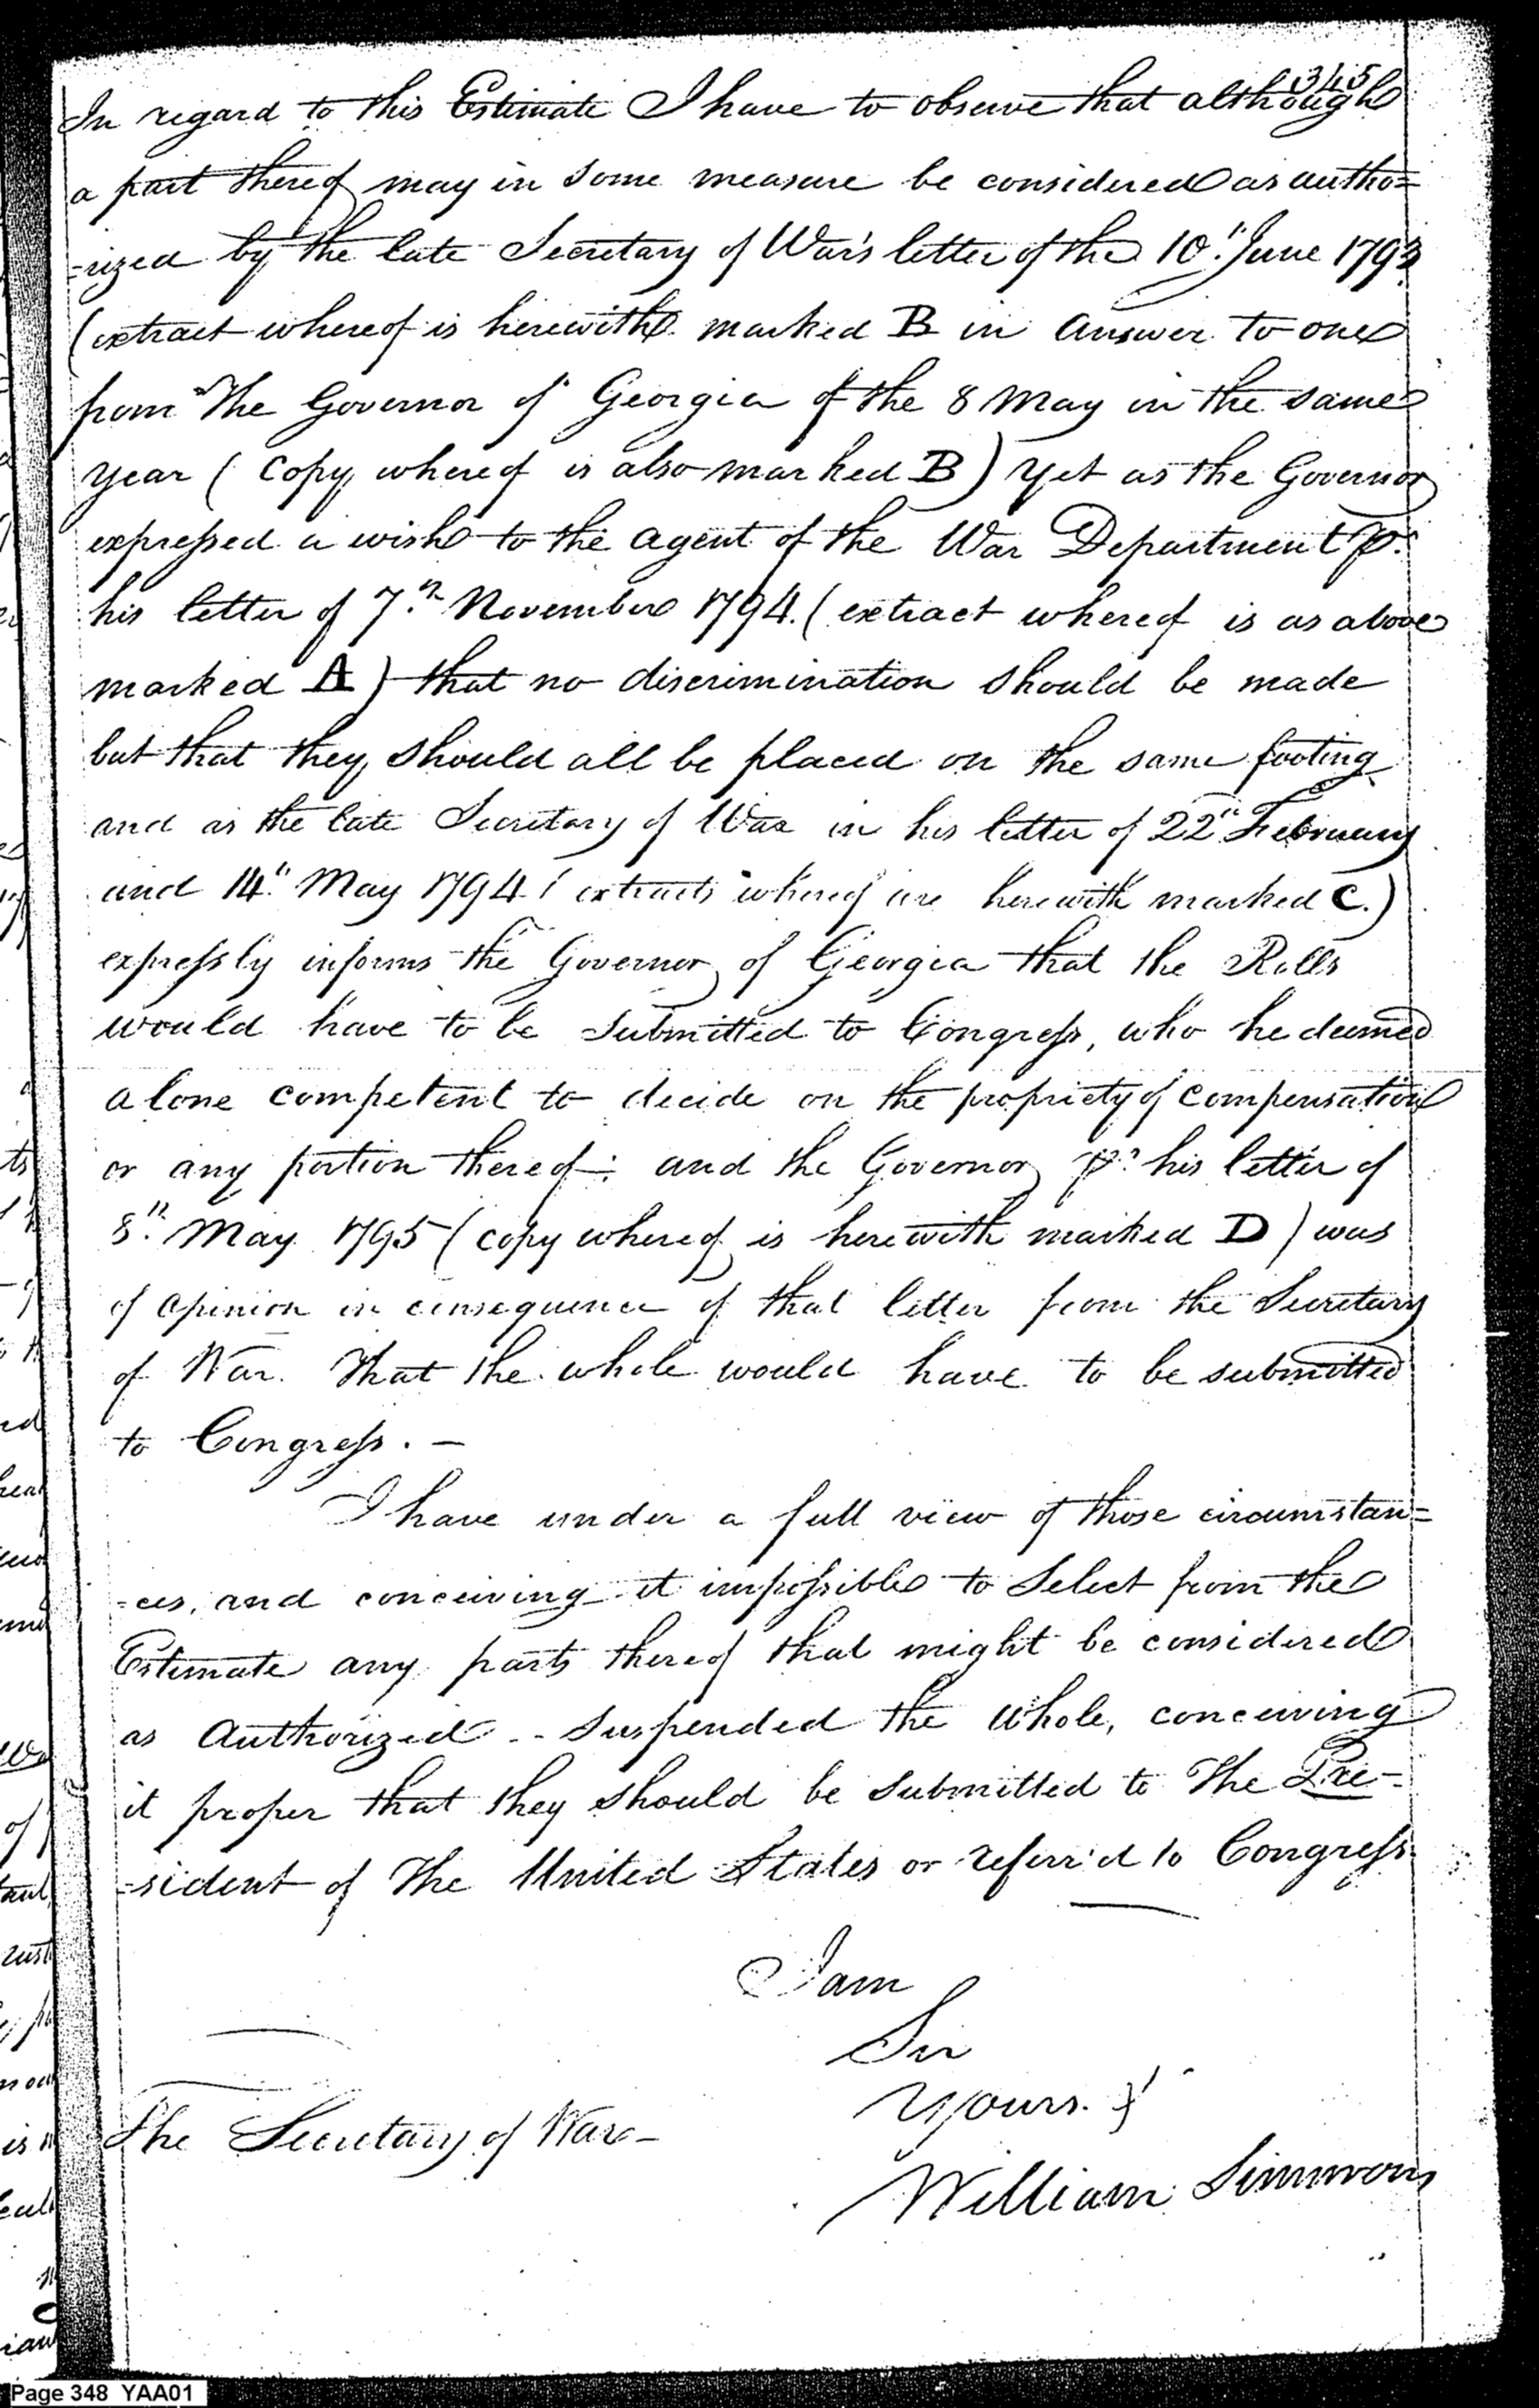 345
In regard to this Estimate I have to observe that although
a part thereof may in some measure be considered as autho=
-rized by the late Secretary of War's letter of the 10th June 1793
(extract whereof is herewith marked B in answer to one
from The Governor of Georgia of the 8 May in the same
year ( copy whereof is also marked B ) yet as the Governor
expressed a wish to the agent of the War Department pr
his letter of 7th November 1794. ( extract whereof is as above
marked A ) that no discrimination should be made
but that they should all be placed on the same footing
and as the late Secretary of War in his letter of 22d February
and 14th May 1794 ( extracts whereof are herewith marked C.)
expressly informs the Governor of Georgia that the Rolls
would have to be submitted to Congress, who he deemed
alone competent to decide on the propriety of compensation
or any portion thereof: and the Governor pr his letter of
8th May 1795 ( copy whereof is herewith marked D ) was
of opinion in consequence of that letter from the Secretary
of War. that the whole would have to be submitted
to Congress. -
I have under a full view of those circumstan=
-ces, and conceiving it impossible to Select from the
Estimate any parts thereof that might be considered
as Authorized - suspended the whole, conceiving
it proper that they should be submitted to The Pre-
=sident of The United States or referr'd to Congress
I am
Sir
Yours. &
The Secretary of War -
William Simmons
Page 348 YAA01